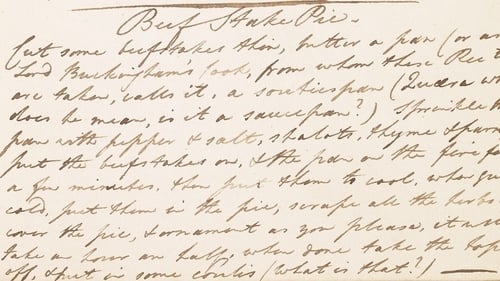 Beef Stake Pie.
Cut some beefstakes thin, butter a pan (or as
Lord Buckingham's Cook, from whom these Rects
are taken, calls it, a soutiespan (Quæra w
does he mean, is it a saucepan?) Sprinkle
pan with pepper & salt, shalots, thyme & pars
put the beefstakes on, & the pan on the fire fo
a few minutes, then put them to cool, when qui
cold, put them in the pie, scrape all the herbs
cover the pie, & ornament as you please, it will
take an hour an half, when done take the top
off, & put in some coulis (what is that?)